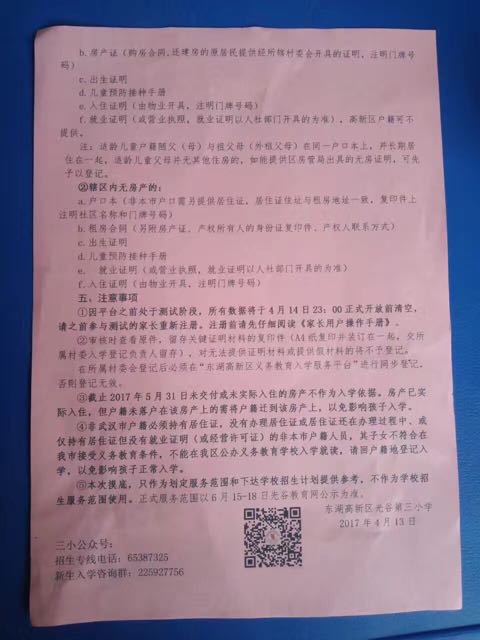 b.房产证（购房合同,还建房的原居民提供经所辖村委会开具的证明，注明门牌号
码）
c.出生证明
d.儿童预防接种手册
e.入住证明（由物业开具，注明门牌号码）
f.就业证明（或营业执照，就业证明以人社部门开具的为准），高新区户籍可不
提供。
注：适龄儿童户籍随父（母）与祖父母（外祖父母）在同一户口本上，并长期居
住在一起，适龄儿童父母并无其他住房的，如能提供区房管局出具的无房证明，可先
予以登记。
②辖区内无房产的：
a.户口本（非本市户口需另提供居住证，居住证住址与租房地址一致，复印件上
注明社区名称和门牌号码）
b.租房合同（另附房产证、产权所有人的身份证复印件、产权人联系方式）
c.出生证明
d.儿童预防接种手册
e. 就业证明（或营业执照，就业证明以人社部门开具的为准）
f.入住证明（由物业开具，注明门牌号码）
五、注意事项
①因平台之前处于测试阶段，所有数据将于4月14日23：00正式开放前清空，
请之前参与测试的家长重新注册。注册前请先仔细阅读《家长用户操作手册》。
②审核时查看原件，留存关键证明材料的复印件（A4纸复印并装订在一起，交所
属村委入学登记负责人留存），对无法提供证明材料或提供假材料的将不予登记。
在所属村委会登记后必须在“东湖高新区义务教育入学服务平台”进行同步登记，
否则登记无效。
③截止2017年5月31日未交付或未实际入住的房产不作为入学依据。房产已实
际入住，但户籍未落户在该房产上的需将户籍迁到该房产上，以免影响孩子入学。
④非武汉市户籍必须持有居住证，没有办理居住证或居住证还在办理过程中、或
仅持有居住证但没有就业证明（或经营许可证）的非本市户籍人员，其子女不符合在
我市接受义务教育条件，不能在我区公办义务教育学校入学就读，请回户籍地登记入
学，以免影响孩子正常入学。
⑤本次摸底，只作为划定服务范围和下达学校招生计划提供参考，不作为学校招
生服务范围使用。正式服务范围以6月15-18日光谷教育网公示为准。
东湖高新区光谷第三小学
2017年4月13日
三小公众号：
招生专线电话：65387325
新生入学咨询群：225927756